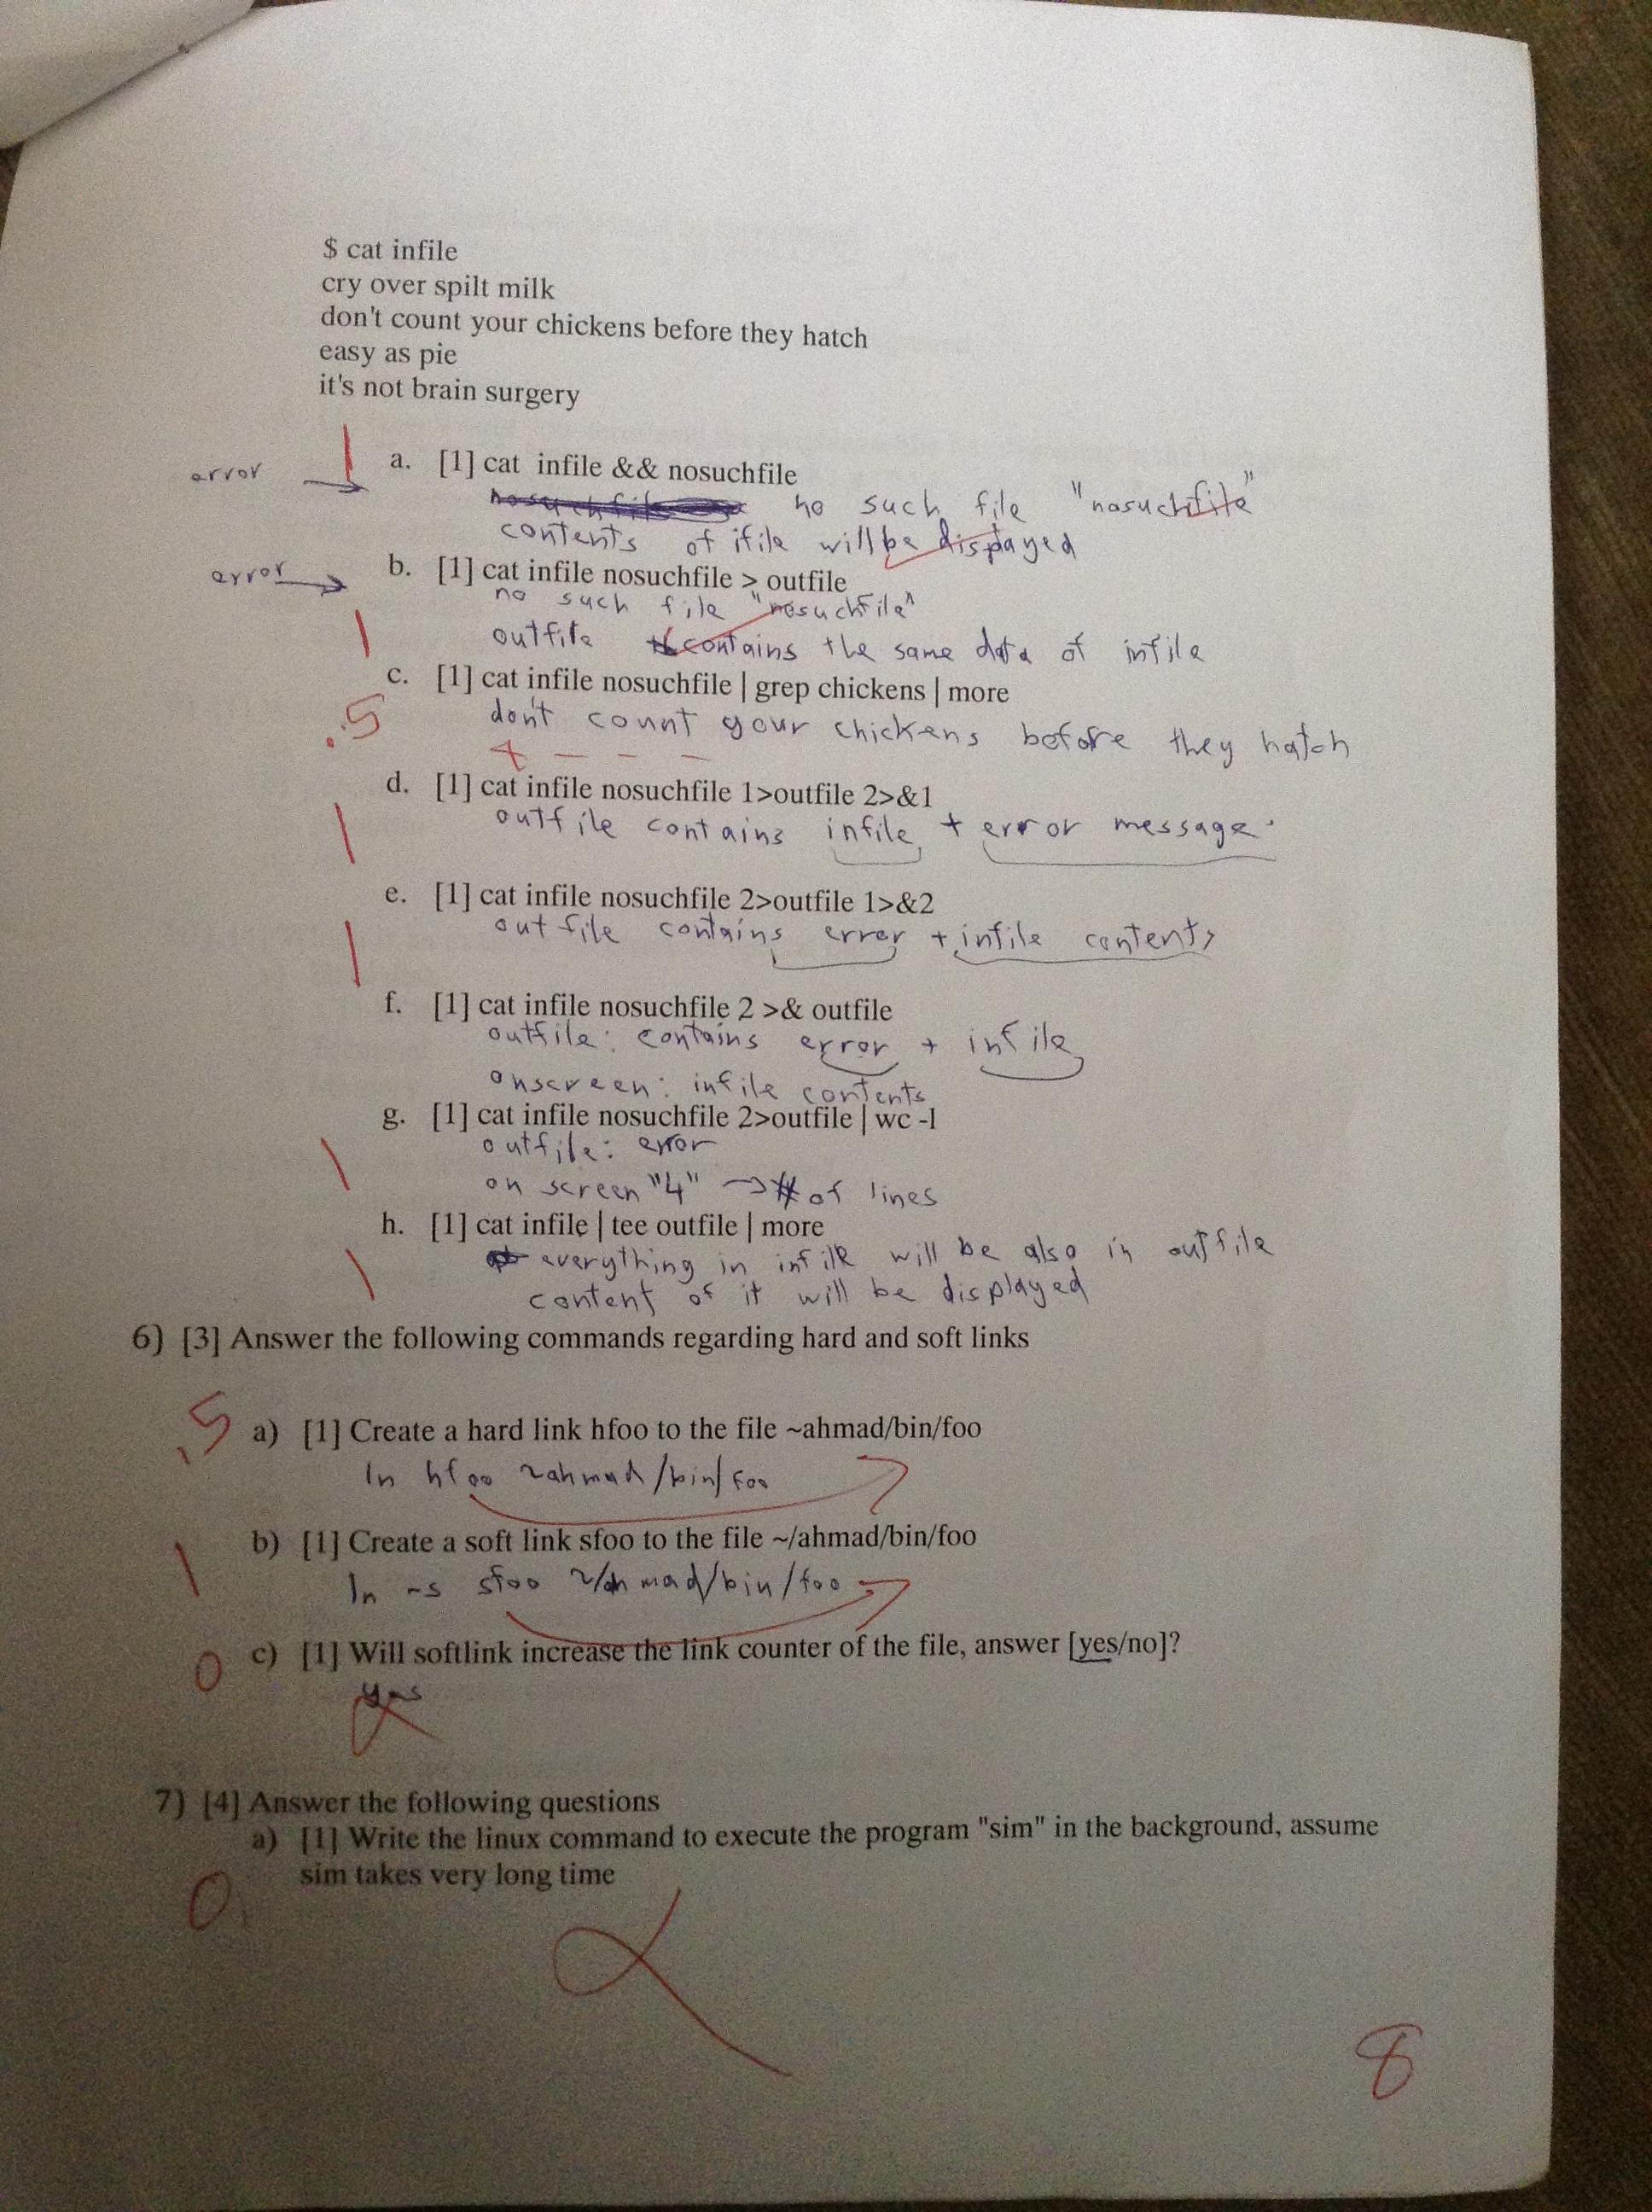 $ cat infile
cry over spilt milk
don't count your chickens before they hatch
easy as pie
it's not brain surgery
error 1 a. [1] cat infile && nosuchfile
no such file "nosuchfile"
contents of ifile will be displayed
error b. [1] cat infile nosuchfile > outfile
no such file "nosuchfile"
1 outfile contains the same data of infile
c. [1] cat infile nosuchfile | grep chickens | more
.5 don't count your chickens before they hatch
d. [1] cat infile nosuchfile 1>outfile 2>&1
1 outfile contains infile + error message.
e. [1] cat infile nosuchfile 2>outfile 1>&2
1 outfile contains error + infile contents
f. [1] cat infile nosuchfile 2 >& outfile
outfile: contains error + infile
onscreen: infile contents
g. [1] cat infile nosuchfile 2>outfile | wc -l
outfile: error
1 on screen "4" → # of lines
h. [1] cat infile | tee outfile | more
1 everything in infile will be also in outfile
content of it will be displayed
6) [3] Answer the following commands regarding hard and soft links
.5 a) [1] Create a hard link hfoo to the file ~ahmad/bin/foo
ln hfoo ~ahmad/bin/foo
1 b) [1] Create a soft link sfoo to the file ~/ahmad/bin/foo
ln -s sfoo ~/ahmad/bin/foo
0 c) [1] Will softlink increase the link counter of the file, answer [yes/no]?
yes
7) [4] Answer the following questions
a) [1] Write the linux command to execute the program "sim" in the background, assume
0 sim takes very long time
8